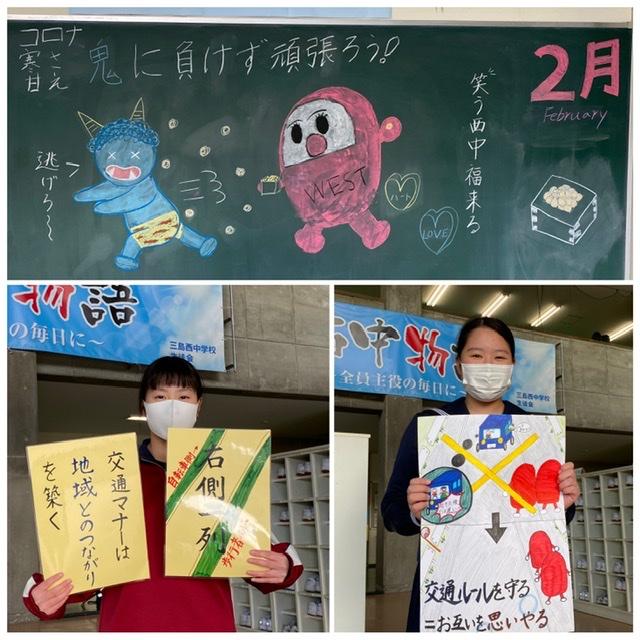 コロナ
寒さ
甘え
鬼に負けず頑張ろう!
笑う西中福来る
2月
February
逃げろ〜
WEST
ハート
LOVE
物語
の毎日に〜
三島西中学校
生徒会
交通マナーは
地域とのつながり
を築く
右側一列
歩行者
西中物
全員主役の毎日に〜
三島西中学校
生徒会
交通ルールを守る
=お互いを思いやる